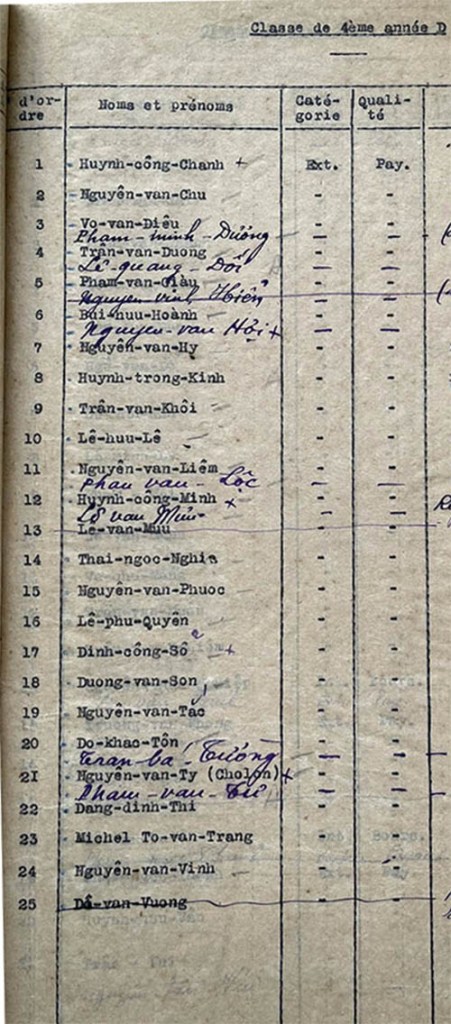 Classe de 4ème année D
d'or-dre Noms et prénoms Caté-gorie Quali-té
1 - Huynh-công-Chanh + Ext. Pay.
2 - Nguyên-van-Chu - -
3 - Vo-van-Diêu - -
Pham-minh-Duong - -
4 - Trân-van-Duong - -
Lê-quang-Dôi - -
5 - Pham-van-Giàu - -
Nguyen-vinh Hiên
6 - Bui-huu-Hoành - -
Nguyen-van Hôi + - -
7 - Nguyên-van-Hy - -
8 - Huynh-trong-Kinh - -
9 - Trân-van-Khôi - -
10 - Lê-huu-Lê - -
11 - Nguyên-van-Liêm - -
phan van - Lôc - -
12 - Huynh-công-Minh + - -
Lê van - -
13 - Le-van-Muu - -
14 - Thai-ngoc-Nghia - -
15 - Nguyên-van-Phuoc - -
16 - Lê-phu-Quyên - -
17 - Dinh-công-Sô + - -
18 - Duong-van-Son - -
19 - Nguyên-van-Tac - -
20 - Do-khac-Tôn - -
Tran-ba-Tuong - -
21 - Nguyên-van-Ty (Cholon) + - -
Pham-van-Tu - -
22 - Dang-dinh-Thi - -
23 - Michel To-van-Trang - -
24 - Nguyên-van-Vinh - -
25 - Dô-van-Vuong - -